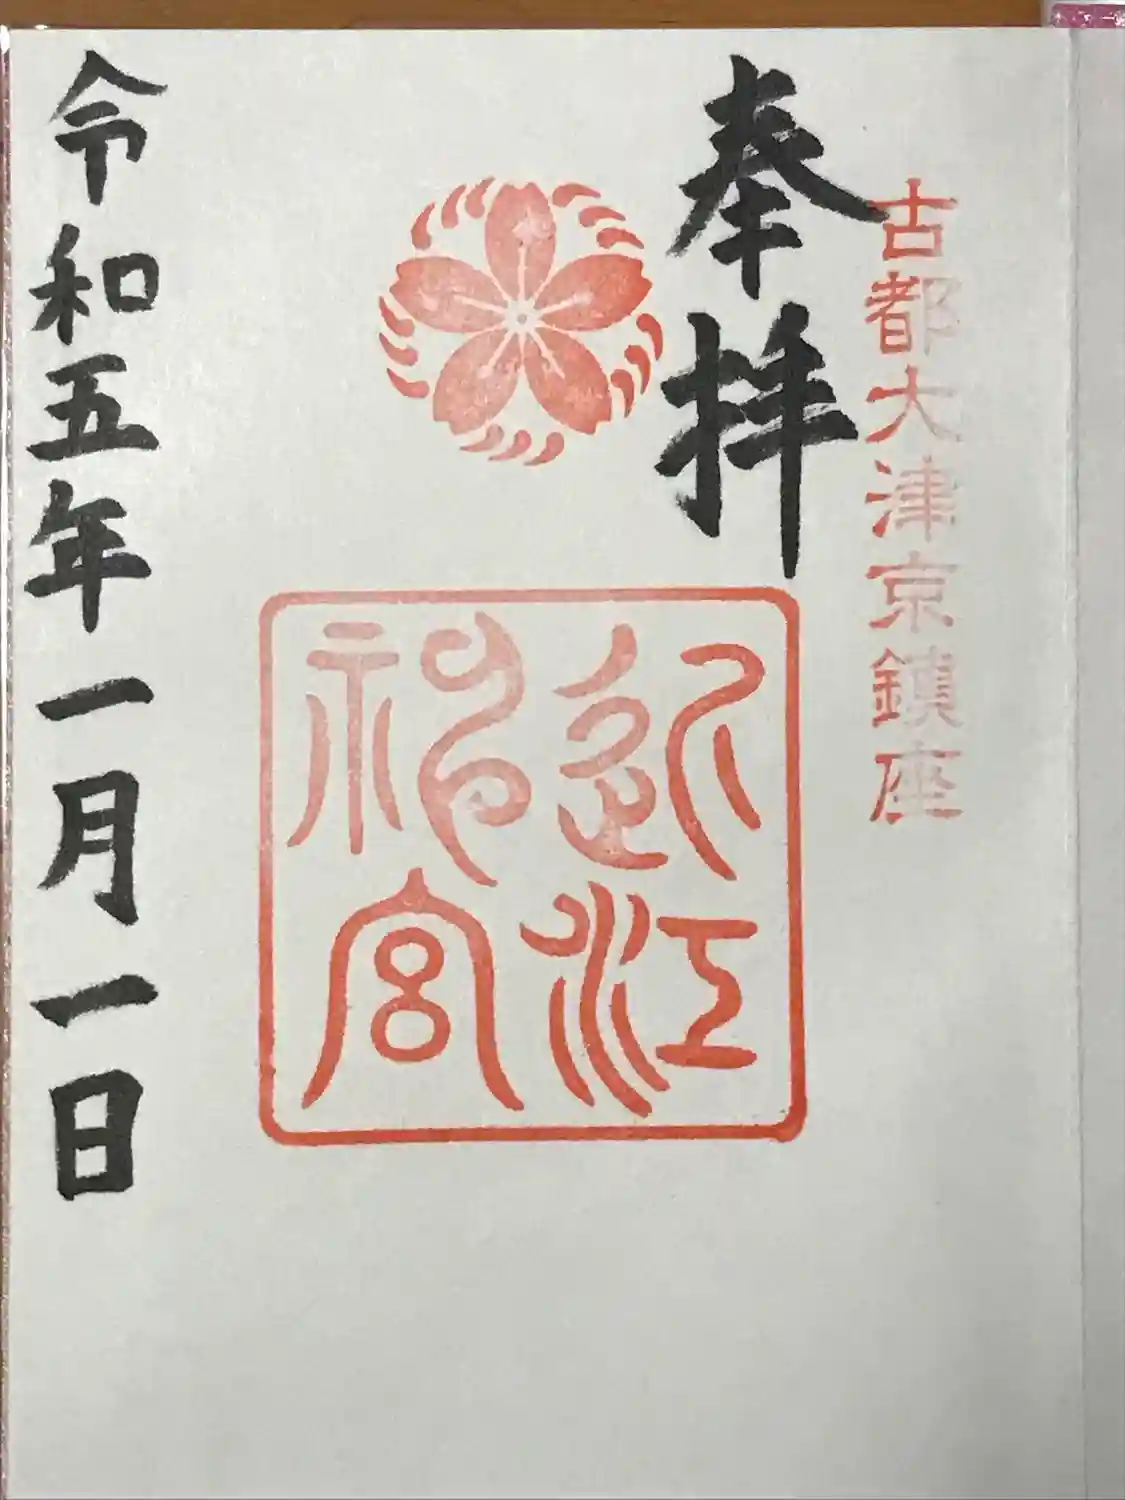 古都大津京鎮座
奉拝
近江
神宮
令和五年一月一日